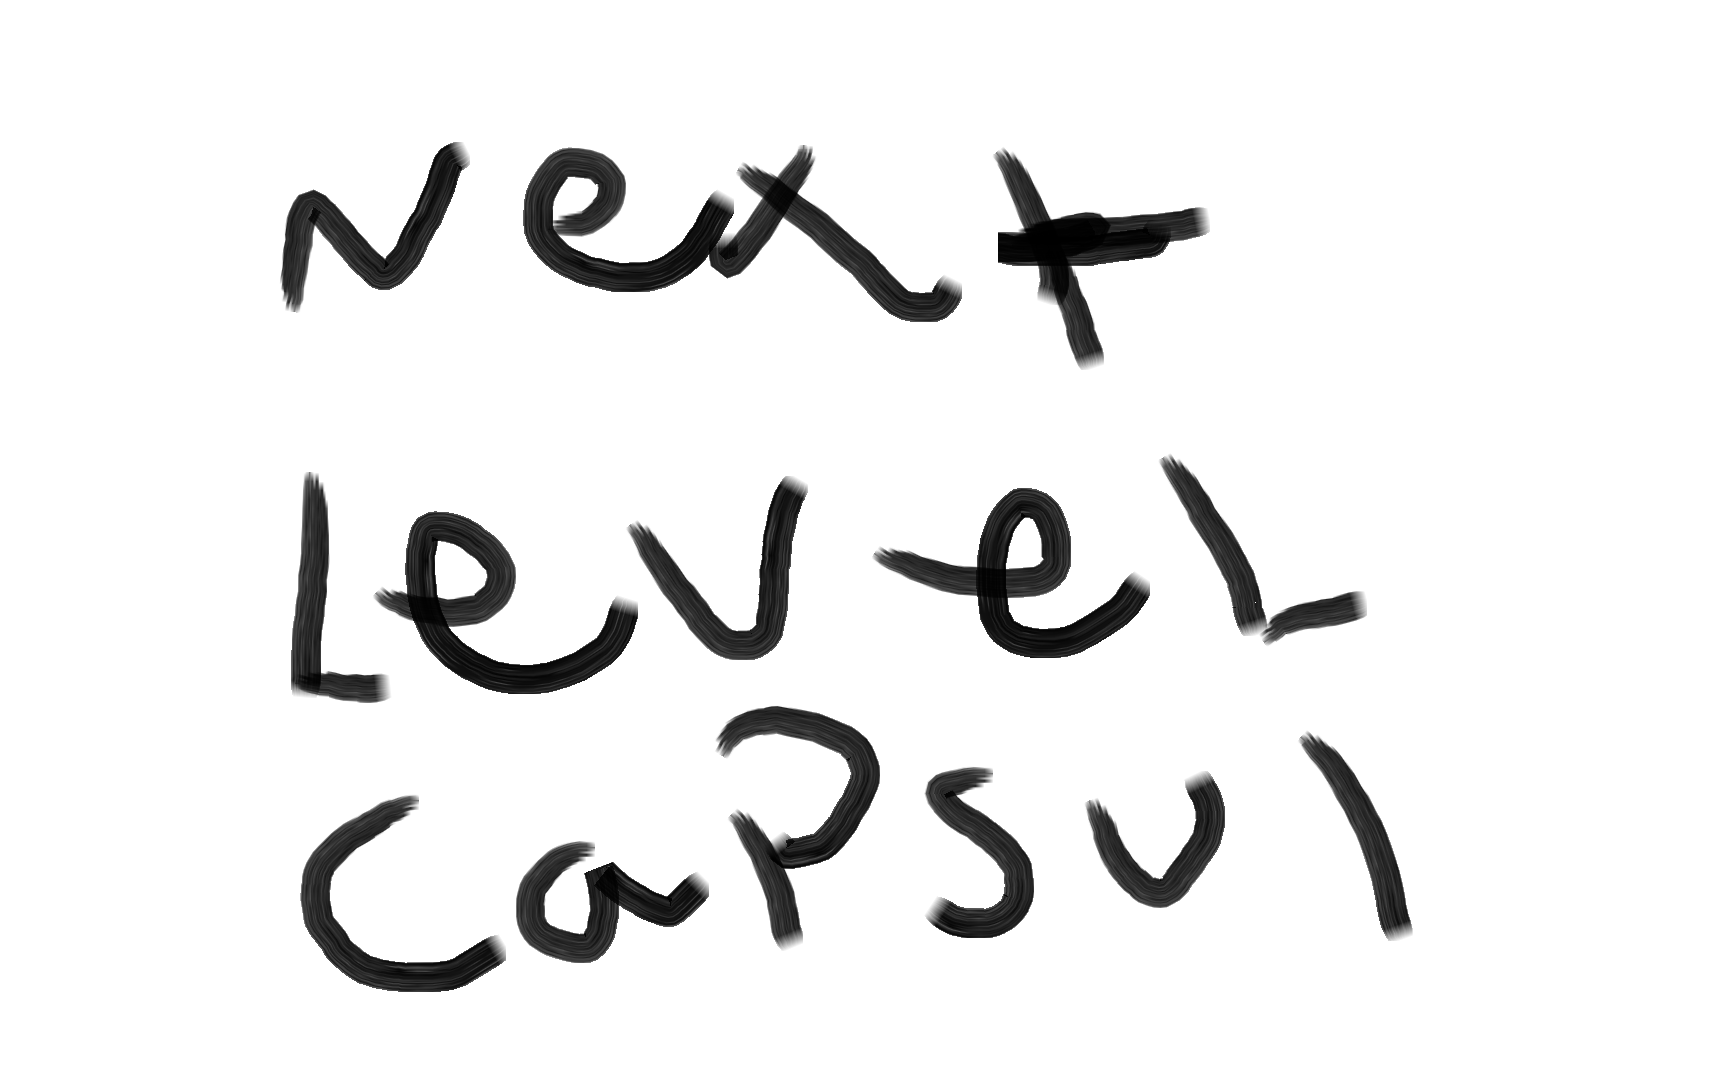 Next
Level
Capsul